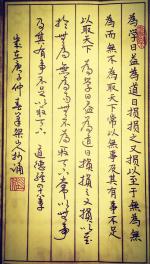 為学日益為道日损损之又损以至于無為無
為而無不為取天下常以無事及其有事不足
以取天下 為学日益為道日损损之又损以至
於無為無為而無不為取天下常以無事
及其有事不足以取天下 道德經四十八章
岁在庚子仲春